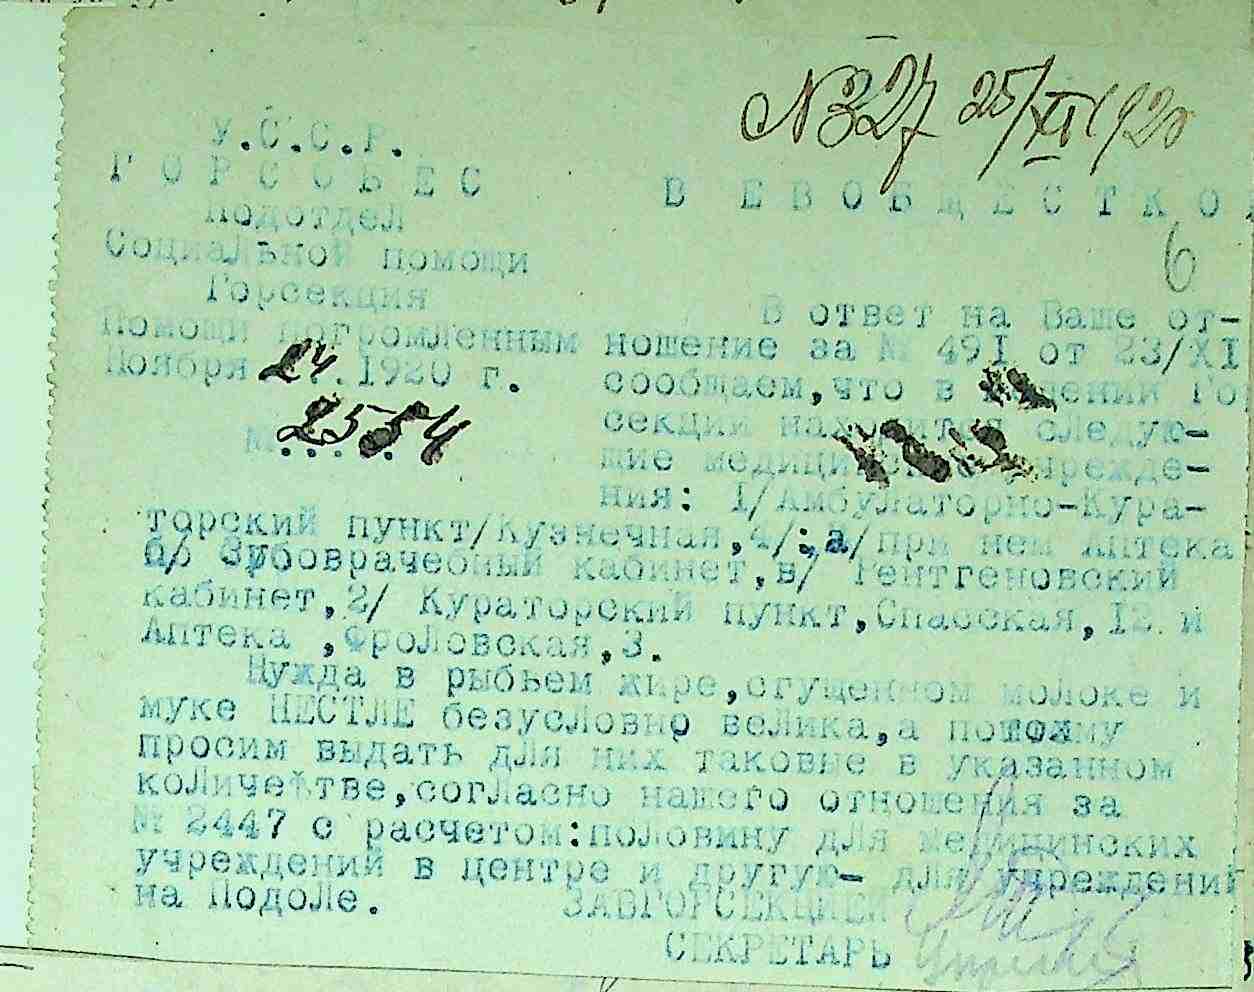 №327 25/XI 1920
У.С.С.Р.
ГОРСОБЕС
Подотдел
Социальной помощи
Горсекция
Помощи погромленным
Ноября 24 . 1920 г.
№ 2554
В ЕВОБЩЕСТКО
6
В ответ на Ваше от-
ношение за № 491 от 23/XI
сообщаем,что в ведении Го
секции находится следую-
щие медицинские учрежде-
ния: 1/Амбулаторно-Кура-
торский пункт/Кузнечная,4/:а/при нем Аптека
б/ Зубоврачебный кабинет,в/ Рентгеновский
кабинет,2/ Кураторский пункт,Спасская,12 и
Аптека ,Фроловская,3.
Нужда в рыбьем жире,сгущенном молоке и
муке НЕСТЛЕ безусловно велика,а потому
просим выдать для них таковые в указанном
количестве,согласно нашего отношения за
№ 2447 с расчетом:половину для медицинских
учреждений в центре и другую- для учреждений
на Подоле.
ЗАВГОРСЕКЦИЕЙ
СЕКРЕТАРЬ